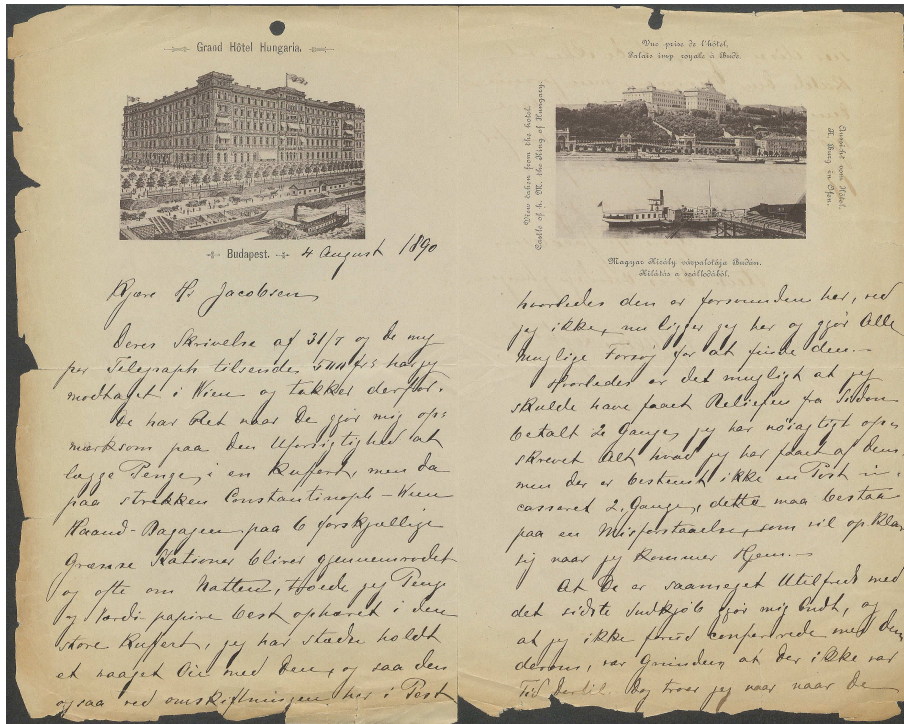 Grand Hôtel Hungaria.
Budapest.
4 August 1890
Kjære Hr Jacobsen
Deres Skrivelse af 31/7 og de mig
per Telegraph tilsendte 500 frs har jeg
modtaget i Wien og takker derfor.
De har Ret naar De gjør mig op=
mærksom paa den Uforsigtighed at
lægge Penge i en Kuffert, men da
paa Strækken Constantinopel - Wien
Haand-Bagagen paa 6 forskjellige
Grænse Stationer bliver gjennemrodet
og ofte om Natten, troede jeg Penge
og Værdi-papire best opbevaret i den
store Kuffert, jeg har stedse holdt
et vaaget Øie med den, og saa den
ogsaa ved omskiftningen her i Pest
Vue prise de l'hôtel.
Palais imp. royale à Bude.
View taken from the hotel.
Castle of h. M. the King of Hungary.
Ansicht vom Hôtel.
K. Burg in Ofen.
Magyar Király várpalotája Budán.
Kilátás a szállodából.
hvorledes den er forsvunden her, ved
jeg ikke, nu ligger jeg her og gjør Alle
mulige Forsøg for at finde den.-
Hvorledes er det muligt at jeg
skulde have faaet Reliefen fra Sidon
betalt 2 Gange, jeg har nøiagtigt op=
skrevet Alt hvad jeg har faaet af Dem,
men der er bestemt ikke en Post in=
casseret 2 Gange, dette maa bestaa
paa en Misforstaaelse, som vil opklare
sig naar jeg kommer Hjem.-
At De er saameget Utilfreds med
det sidste Indkjøb gjør mig Ondt, og
at jeg ikke forud confererede med Dem
derom, var Grunden at der ikke var
Tid dertil. Dog troer jeg naar De